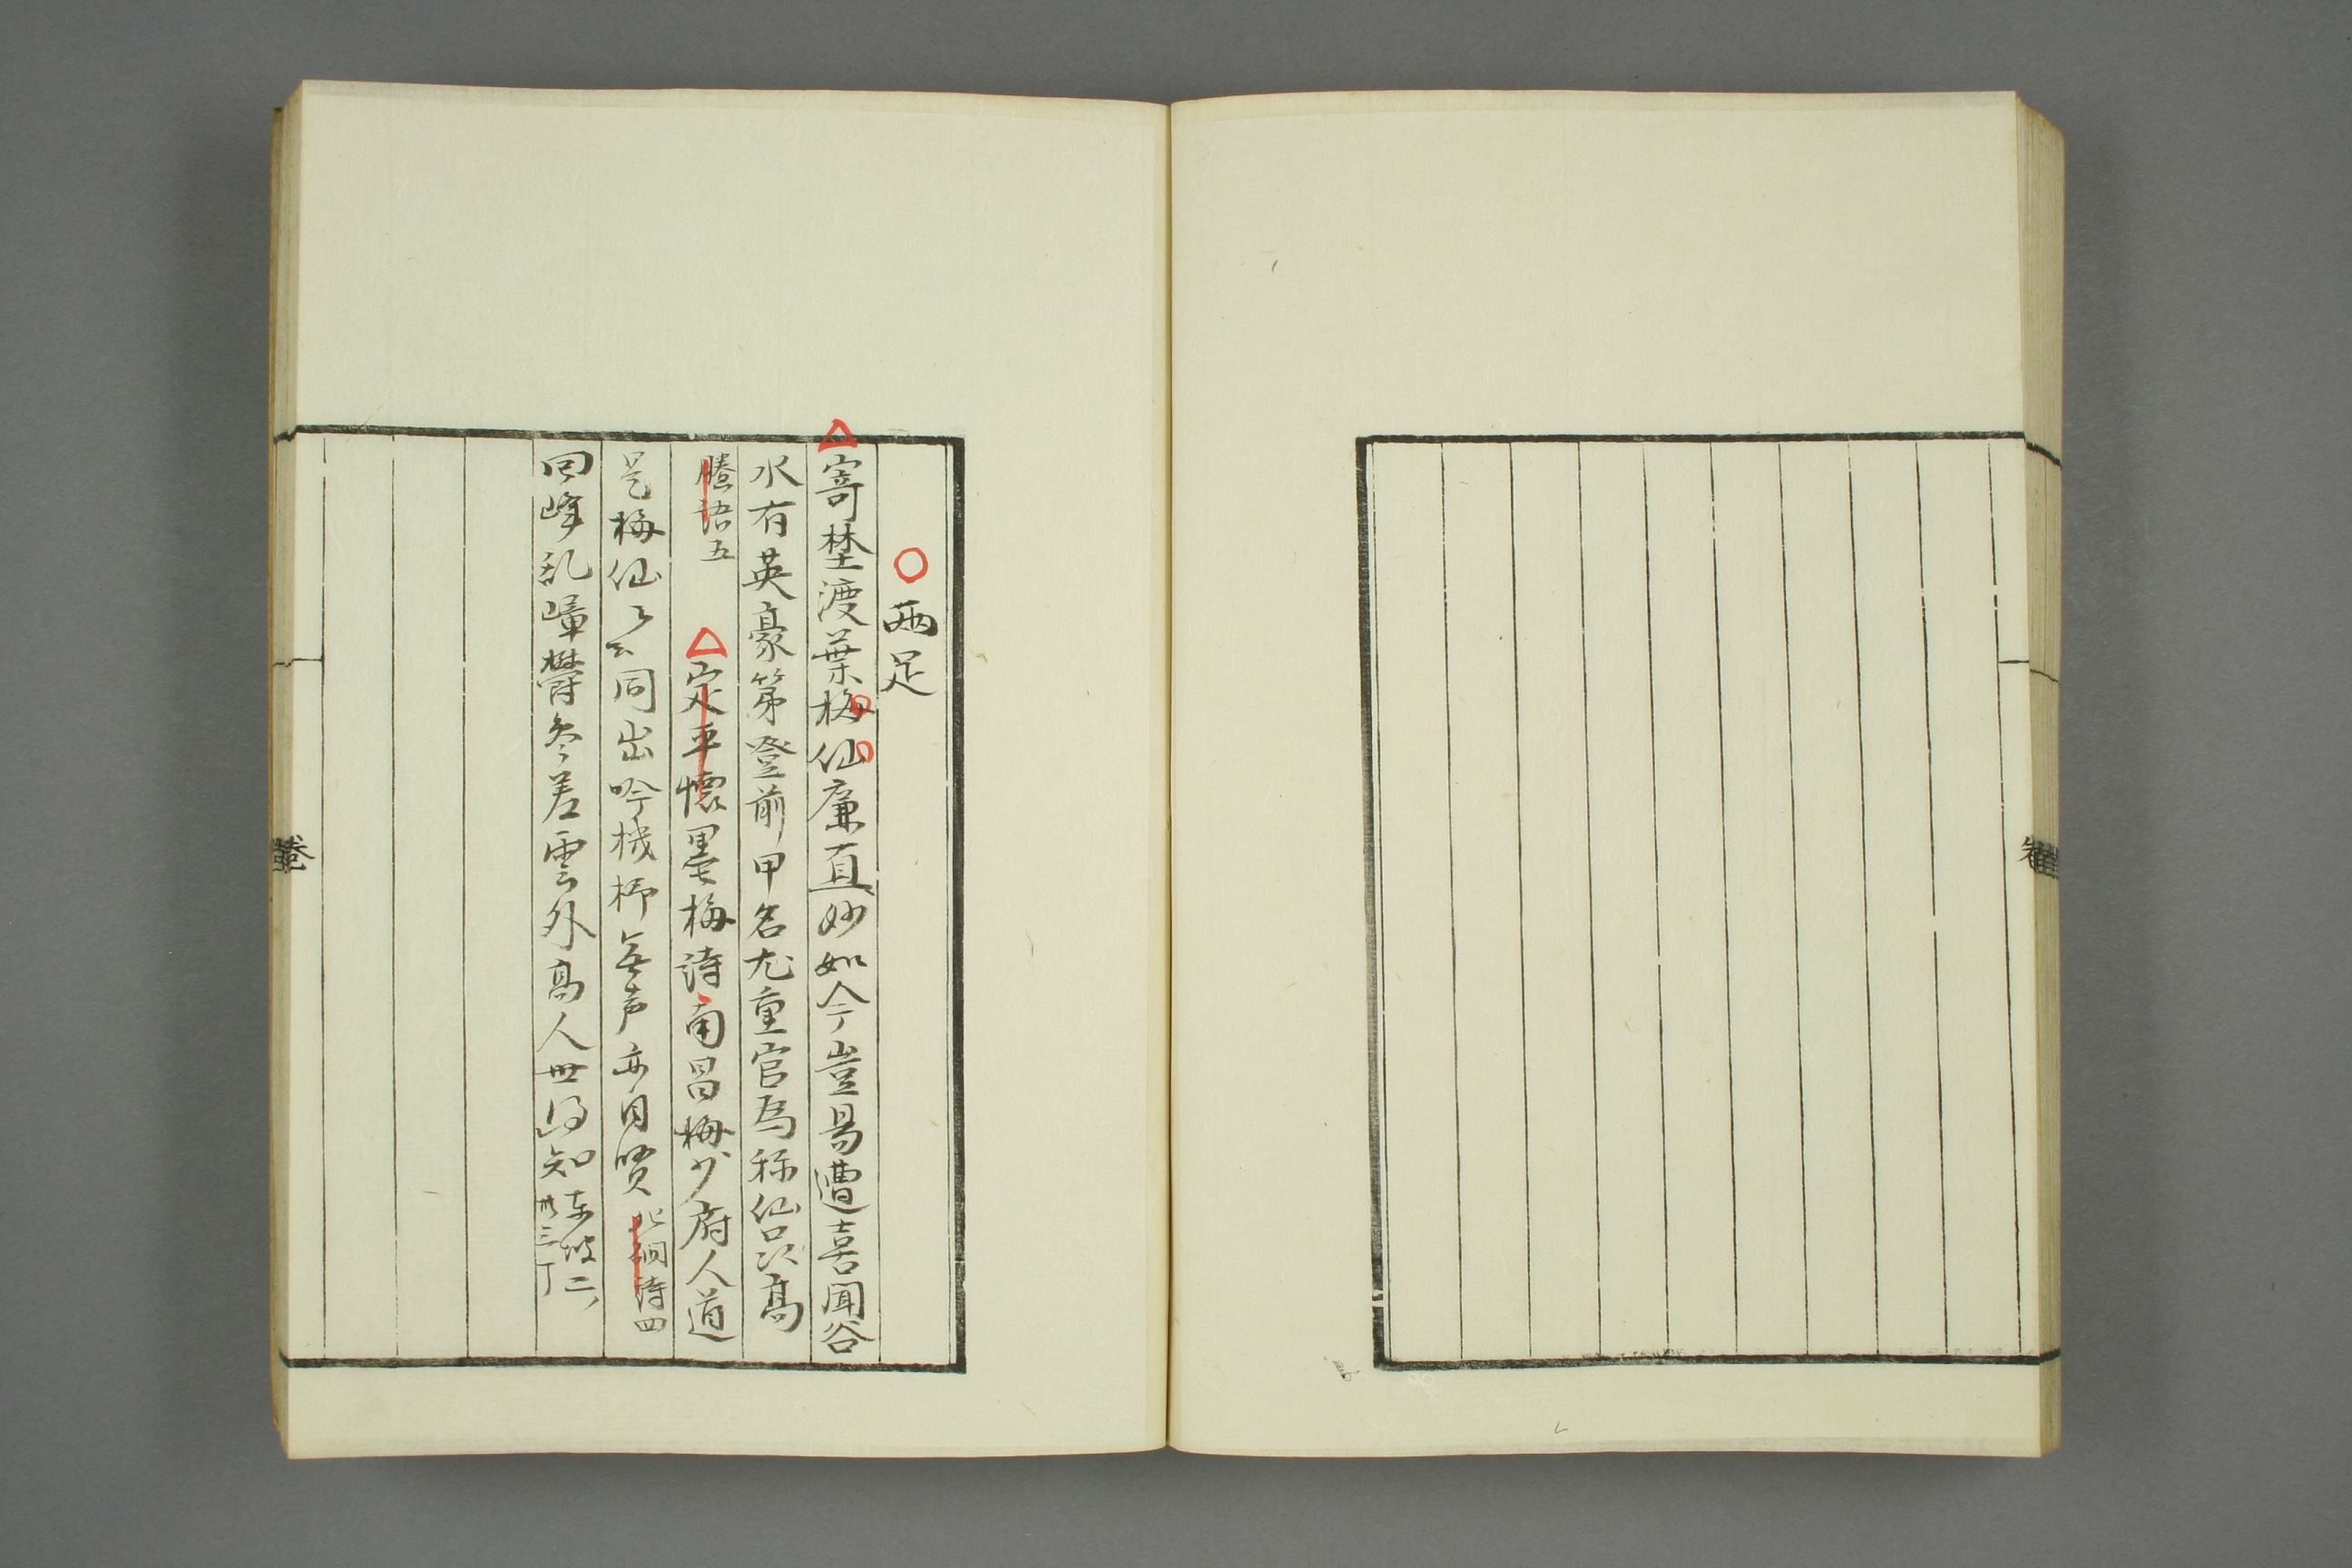 〇兩足
△寄埜渡葉梅仙廉直妙如今豈易遭喜聞谷
水有英豪第登前甲名尤重官爲称仙品次高
賸語五　△定平懷墨梅詩南昌梅少府人道
是梅仙々云同出吟機杼無声亦自賢 北磵詩四
回峰乱嶂鬱参差雲外高人世得知 東坡二
卅三丁